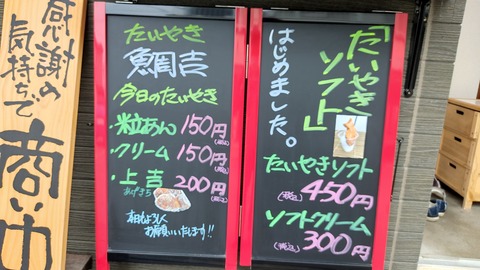 感謝の
気持ちで
商い中
たいやき
鯛吉
今日のたいやき
・粒あん 150円(税込)
・クリーム 150円(税込)
・上吉 200円(税込)
あげきち
本日もよろしく
お願いいたします!!
「たいやき
ソフト」
はじめました。
たいやきソフト
(税込) 450円
ソフトクリーム
(税込) 300円